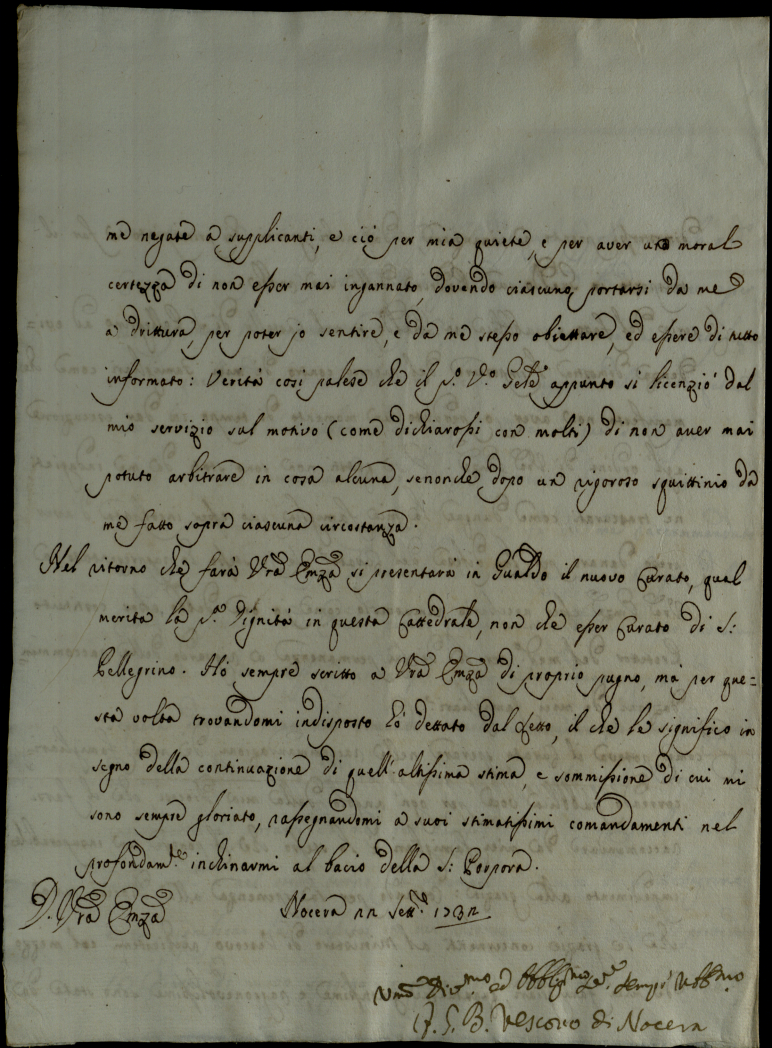 me negate a supplicanti, e ciò per mia quiete, e per aver una moral
certezza di non esser mai ingannato, dovendo ciascuno portarsi da me
a drittura, per poter jo sentire, e da me stesso obiettare, ed essere di tutto
informato: Verità così palese che il appunto si licenziò dal
mio servizio sul motivo (come dichiarossi con molti) di non aver mai
potuto arbitrare in cosa alcuna, senonche dopo un rigoroso squittinio da
me fatto sopra ciascuna circostanza.
Nel ritorno che farà Vrã Emzã si presentarà in Gualdo il nuovo Curato, qual
merita la p.ª Dignità in questa Cattedrale, non che esser Curato di S:
Pellegrino. Hò sempre scritto a Vrã Emzã di proprio pugno, mà per que=
sta volta trovandomi indisposto hò dettato dal Letto, il che le significo in
segno della continuazione di quell'altissima stima, e sommissione di cui mi
sono sempre gloriato, rassegnandomi a suoi stimatissimi comandamenti nel
profondam.te inchinarmi al bacio della S: Porpora.
D. Vrã Emzã Nocera Sett.e 1732
Um̃o Div.mo ed Obblig.mo Se.re sempre
G. B. Vescovo di Nocera